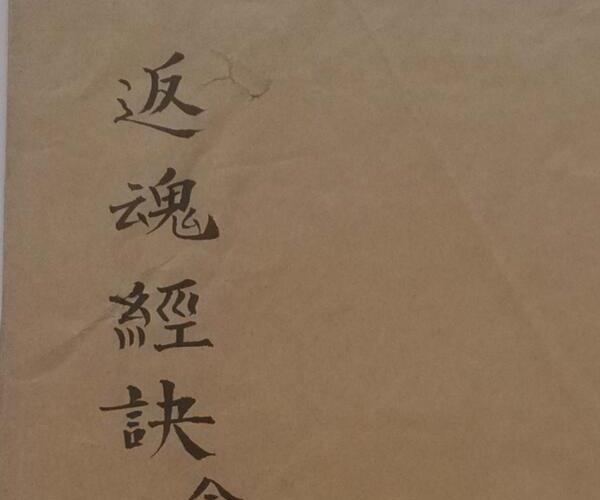 返魂經訣